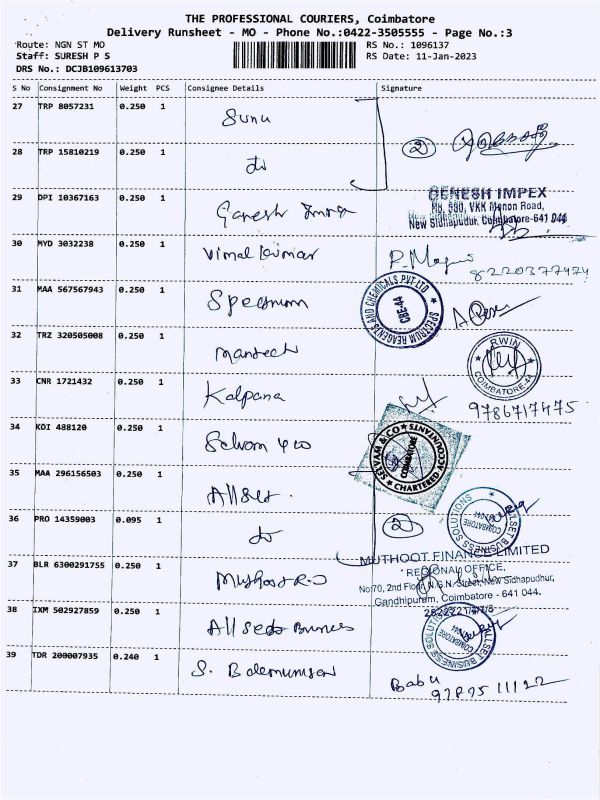 THE PROFESSIONAL COURIERS, Coimbatore
Delivery Runsheet - MO - Phone No.:0422-3505555 - Page No.:3
Route: NGN ST MO RS No.: 1096137
Staff: SURESH P S RS Date: 11-Jan-2023
DRS No.: DCJB109613703
S No Consignment No Weight PCS Consignee Details Signature
27 TRP 8057231 0.250 1 Sunu
28 TRP 15810219 0.250 1 do 2
29 DPI 10367163 0.250 1 Ganesh Impex
GENESH IMPEX
No. 390, VKK Menon Road,
New Sidhapudur, Coimbatore-641 044
30 MYD 3032238 0.250 1 Vimal Kumar 8220377474
31 MAA 567567943 0.250 1 Spectrum
SPECTRUM REAGENTS AND CHEMICALS PVT LTD
CBE-44
32 TRZ 320505008 0.250 1 mantech
COIMBATORE-44
33 CNR 1721432 0.250 1 Kalpana 9786717475
34 KOI 488120 0.250 1 Selvam & co
SELVAM & CO
COIMBATORE
CHARTERED ACCOUNTANTS
35 MAA 296156503 0.250 1 Allset
36 PRO 14359003 0.095 1 do 2
ALLSET BUSINESS SOLUTIONS
COIMBATORE
37 BLR 6300291755 0.250 1 Muthoot R.O
MUTHOOT FINANCE LIMITED
REGIONAL OFFICE,
No:70, 2nd Floor, N.G.N. Street, New Sidhapudur,
Gandhipuram, Coimbatore - 641 044.
38 IXM 502927859 0.250 1 Allseto Business
ALLSET BUSINESS SOLUTIONS
COIMBATORE
39 TDR 200007935 0.240 1 S. Balamurugan Babu